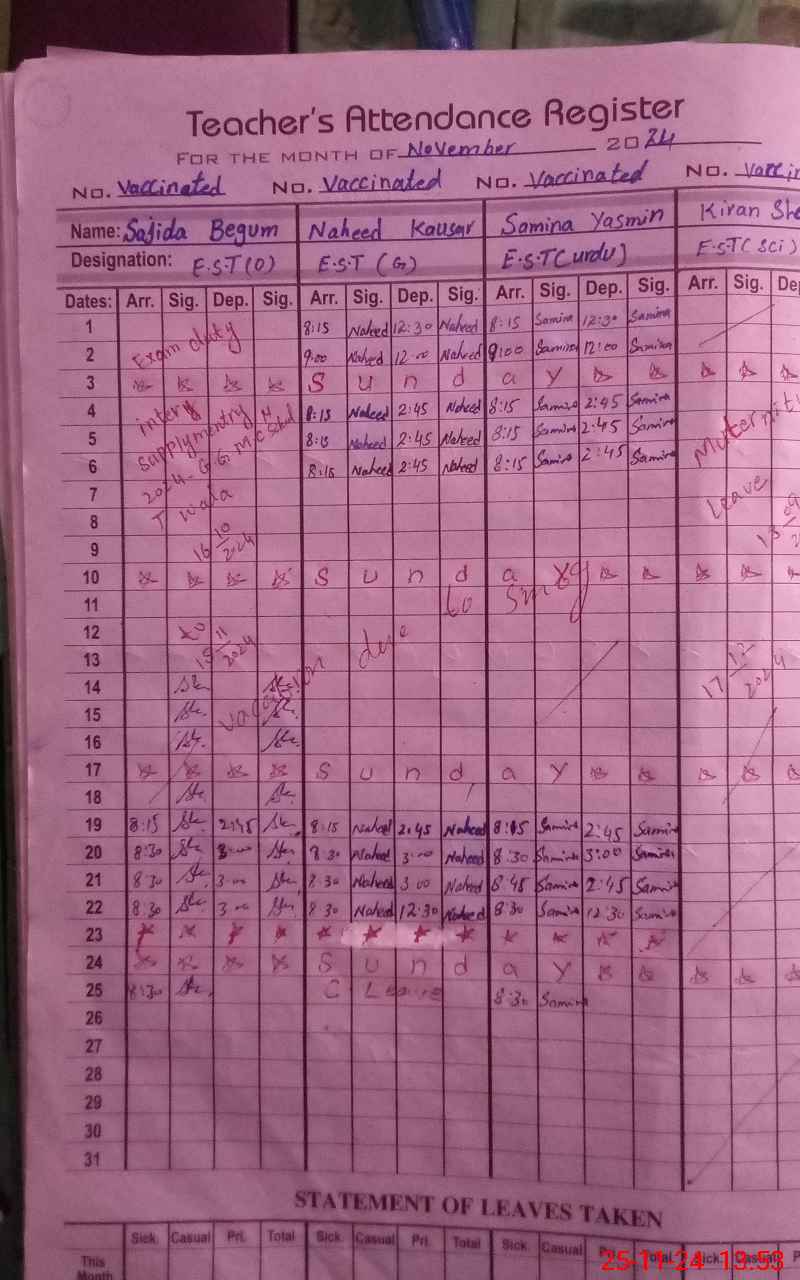 Teacher's Attendance Register
FOR THE MONTH OF November 2024
No. Vaccinated No. Vaccinated No. Vaccinated No.
Name: Sajida Begum Naheed Kausar Samina Yasmin Kiran
Designation: E.S.T (O) E.S.T (G) E.S.T (urdu) E.S.T (Sci)
Dates: Arr. Sig. Dep. Sig. Arr. Sig. Dep. Sig. Arr. Sig. Dep. Sig. Arr. Sig.
1 Exam duty 8:15 Naheed 12:30 Naheed 8:15 Samina 12:30 Samina
2 9:00 Naheed 12:00 Naheed 9:00 Samina 12:00 Samina
3 S u n d a y
4 inter 8:15 Naheed 2:45 Naheed 8:15 Samina 2:45 Samina
5 supplymentry 8:15 Naheed 2:45 Naheed 8:15 Samina 2:45 Samina Maternity
6 2024 8:15 Naheed 2:45 Naheed 8:15 Samina 2:45 Samina
7 T wala Leave
8
9 16 10 2024
10 S u n d a y
11 to Smog
12 to due
13 15 11 2024
14 vacation 17 12 2024
15
16
17 S u n d a y
18
19 8:15 2:45 8:15 Naheed 2:45 Naheed 8:15 Samina 2:45 Samina
20 8:30 3:00 8:30 Naheed 3:00 Naheed 8:30 Samina 3:00 Samina
21 8:30 3:00 8:30 Naheed 3:00 Naheed 8:45 Samina 2:45 Samina
22 8:30 3:00 8:30 Naheed 12:30 Naheed 8:30 Samina 12:30 Samina
23
24 S u n d a y
25 8:30 C Leave 8:30 Samina
26
27
28
29
30
31
STATEMENT OF LEAVES TAKEN
Sick Casual Pri. Total Sick Casual Pri. Total Sick Casual Total Sick
This Month
25-11-24 13:53